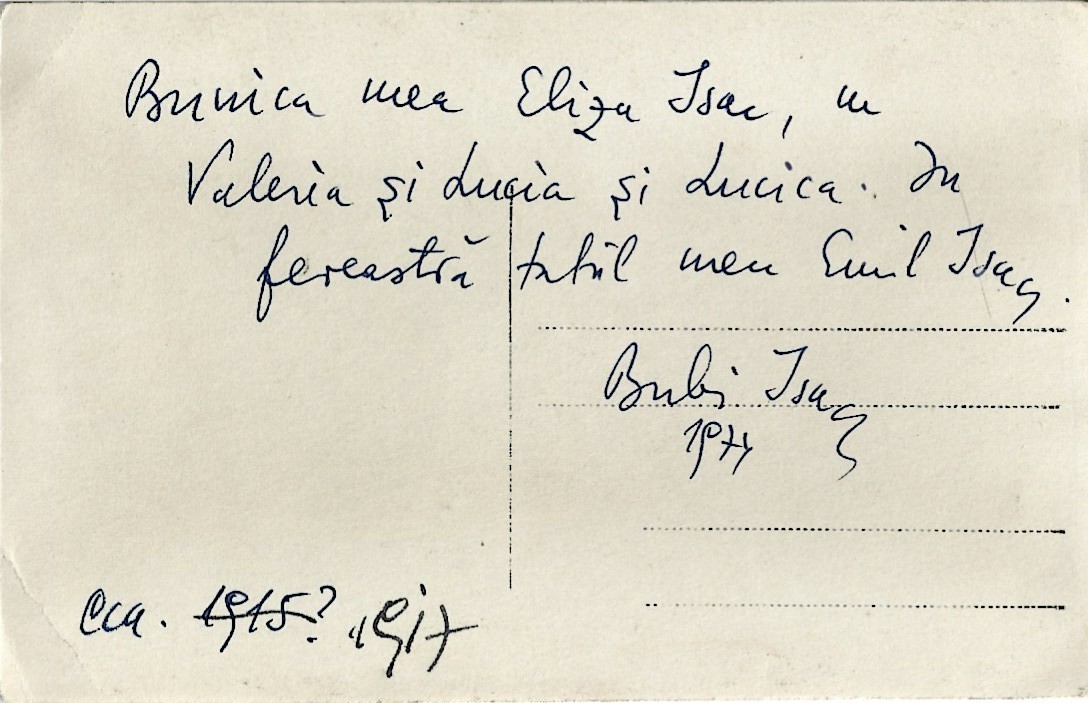 Bunica mea Eliza Isac, cu
Valeria și Lucia și Lucica. În
fereastră tatăl meu Emil Isac.
Bubi Isac
1974
cca. 1915? 1917